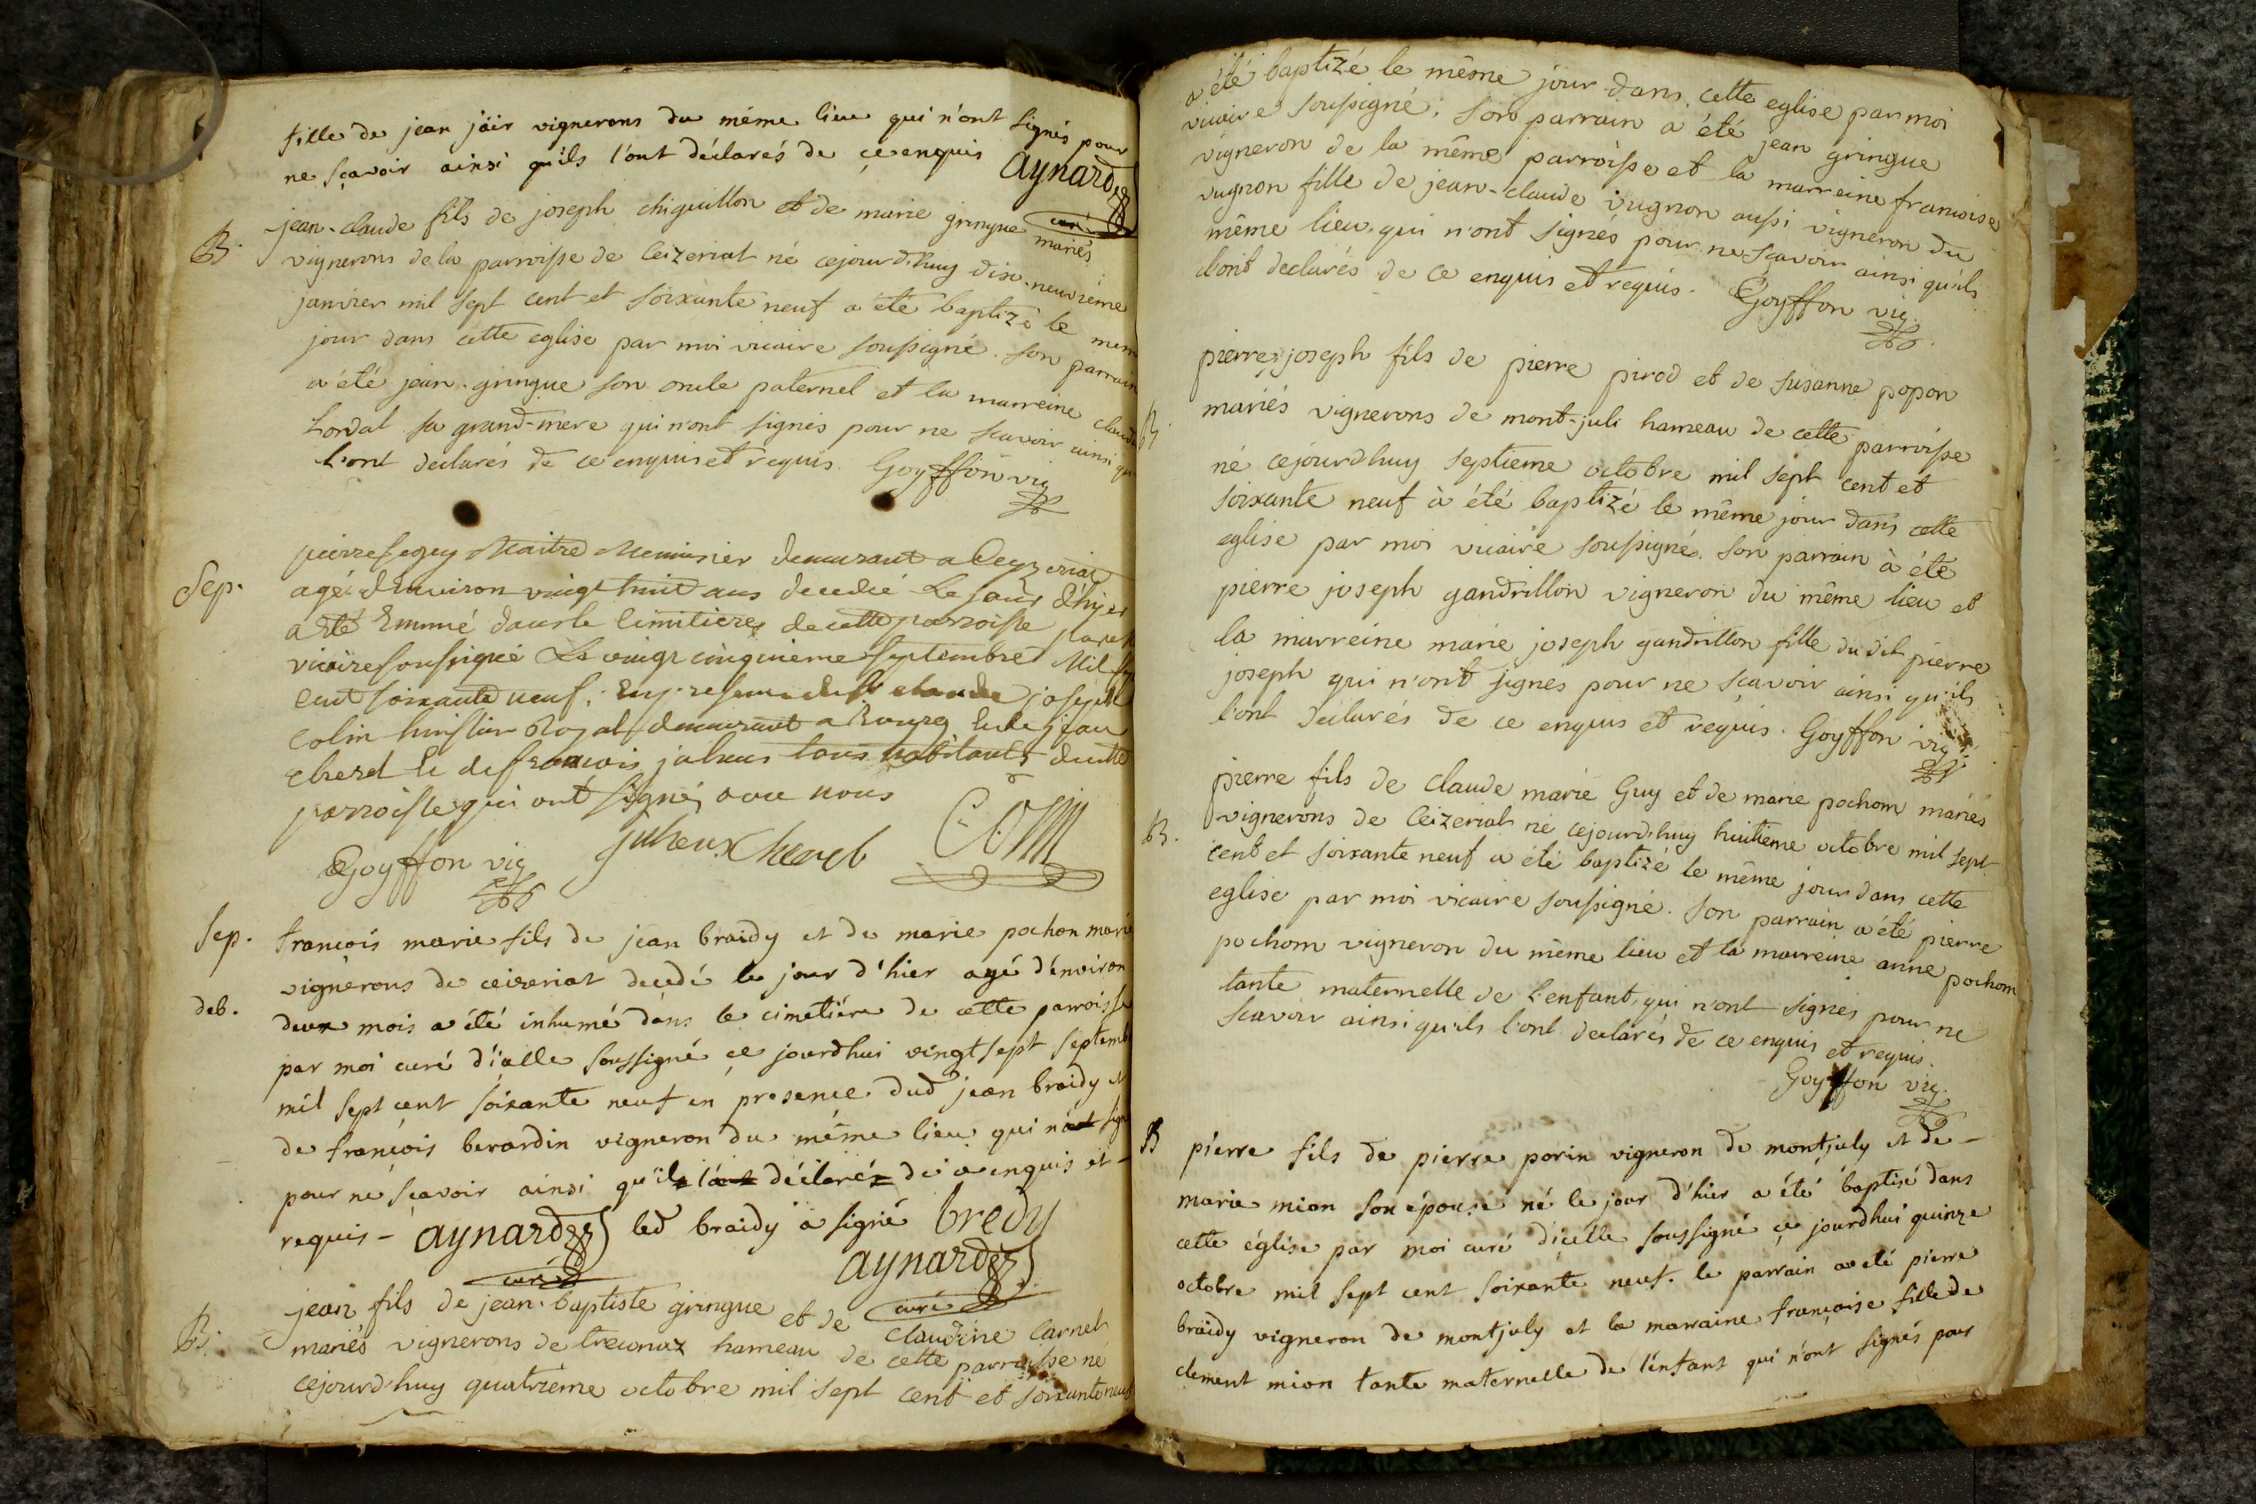 fille de jean jair vignerons du même lieu qui n'ont signés pour
ne sçavoir ainsi qu'ils l'ont déclarés de ce enquis aynard
curé
B. jean-claude fils de joseph chiquillon et de marie gringue mariés
vignerons de la parroisse de Ceizeriat né cejourd'huy dix-neuvième
janvier mil sept cent et soixante neuf a été baptizé le mem
jour dans cette eglise par moi vicaire soussigné. son parrain
a été jean-gringue son oncle paternel et la marreine claud
Lordal sa grand-mere qui n'ont signés pour ne scavoir ainsi qu
l'ont declarés de ce enquis et requis. Goyffon vic
Sep. pierre Maitre Menuisier demeurant a Ceyzeriat
agé d'Environ vingt huit ans decedé Le jour d'hyer
a été Inumé dans le Cimitiere de cette parroisse par
vicaire soussigné Le vingt cinquieme septembre Mil
cent soixante neuf; En presence de Sr claude joseph
colin huissier Royal demeurant a Bourg et de jean
cherel et de francois juheus tous habitants de cette
parroisse qui ont signé avec nous
Goyffon vic juheux cherel Colin
Sep. françois marie fils de jean braidy et de marie pochon marié
vignerons de ceizeriat decedé le jour d'hier agé d'environ
deb. deux mois a été inhumé dans le cimetière de cette parroisse
par moi curé d'icelle soussigné ce jourdhui vingt sept septemb
mil sept cent soixante neuf en presence dud jean braidy et
de françois berardin vigneron du même lieu qui n'ont sign
pour ne sçavoir ainsi qu'ils l'ont déclarés de ce enquis et -
requis - aynard led braidy a signé bredy
curé aynard
curé
B. jean fils de jean-baptiste gringue et de claudine Carnet
mariés vignerons de treconnaz hameau de cette parroisse né
cejourd'huy quatrieme octobre mil sept cent et soixante neuf
a été baptizé le même jour dans cette eglise par moi
vicaire soussigné. son parrain a été jean gringue
vigneron de la même parroisse et la marreine francoise
vugnon fille de jean-claude vugnon aussi vigneron du
même lieu qui n'ont signés pour ne scavoir ainsi qu'ils
l'ont declarés de ce enquis et requis. Goyffon vic.
B. pierre joseph fils de pierre pirod et de susanne popon
mariés vignerons de mont-juli hameau de cette parroisse
né cejourdhuy septieme octobre mil sept cent et
soixante neuf à été baptizé le même jour dans cette
eglise par moi vicaire soussigné. son parrain à été
pierre joseph gandrillon vigneron du même lieu et
la marreine marie joseph gandrillon fille dudit pierre
joseph qui n'ont signes pour ne sçavoir ainsi qu'ils
l'ont declarés de ce enquis et requis. Goyffon vic.
pierre fils de Claude marie Guy et de marie pochom mariés
B. vignerons de Ceizeriat né cejourd'huy huitieme octobre mil sept
cent et soixante neuf a été baptizé le même jour dans cette
eglise par moi vicaire soussigné. son parrain a été pierre
pochom vigneron du même lieu et la marreine anne pochom
tante maternelle de l'enfant, qui n'ont signés pour ne
scavoir ainsi qu'ils l'ont declarés de ce enquis et requis.
Goyffon vic.
B pierre fils de pierre porin vigneron de montjuly et de -
marie mion son épouse né le jour d'hier a été baptisé dans
cette église par moi curé d'icelle soussigné ce jourdhui quinze
octobre mil sept cent soixante neuf. le parrain a été pierre
braidy vigneron de montjuly et la marraine françoise fille de
clement mion tante maternelle de l'enfant qui n'ont signés pour